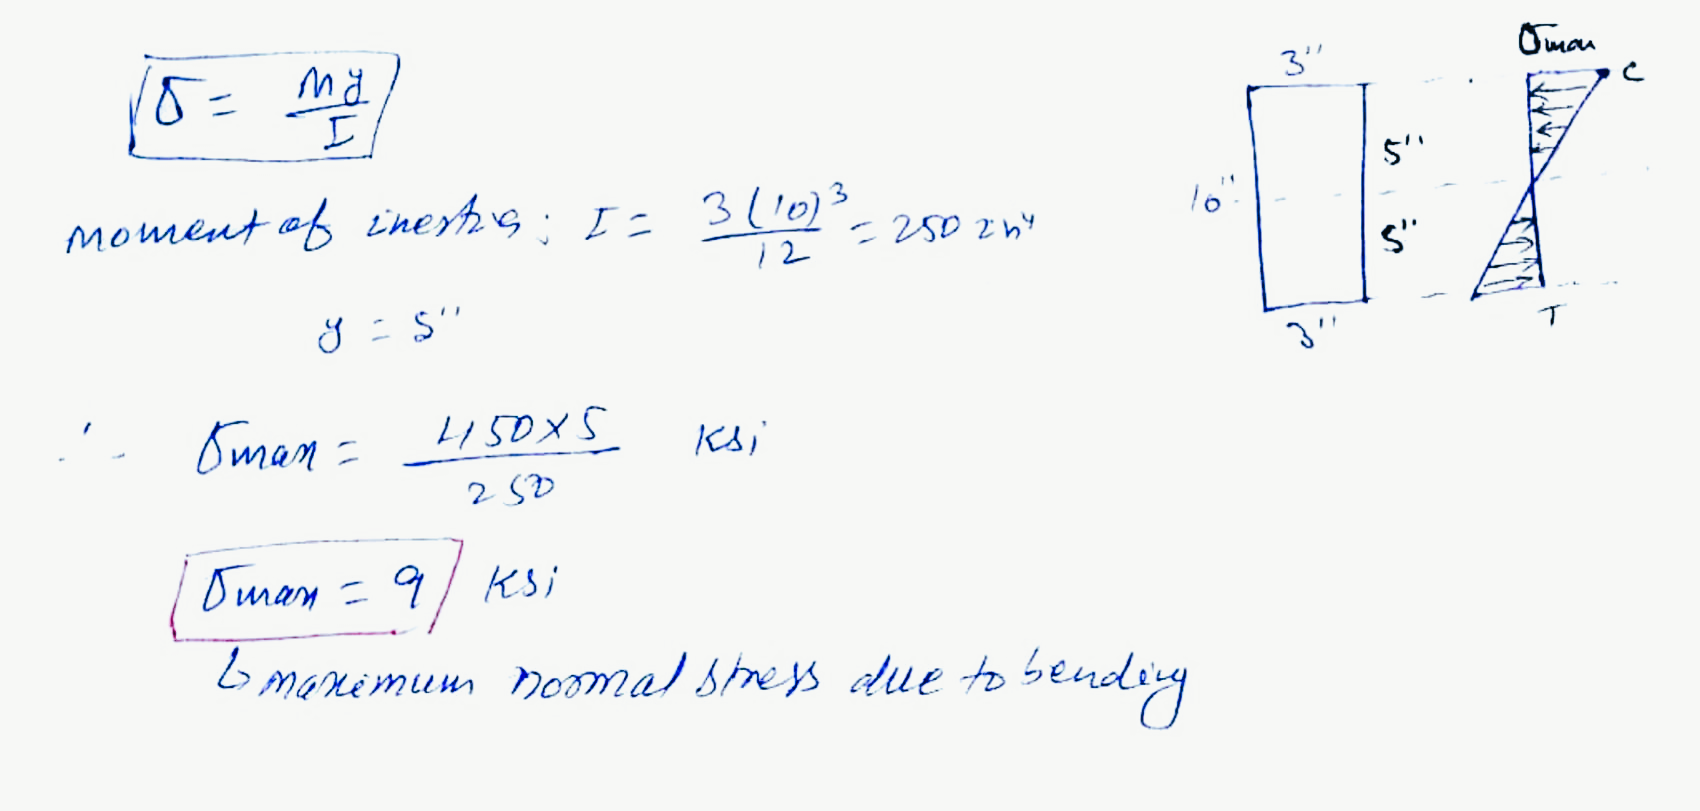 σ = My/I
moment of inertia; I = 3(10)³/12 = 250 in⁴
y = 5''
∴ σmax = 450×5/250 Ksi
σmax = 9 Ksi
↳ maximum normal stress due to bending
3''
10''
5''
5''
3''
σmax
C
T